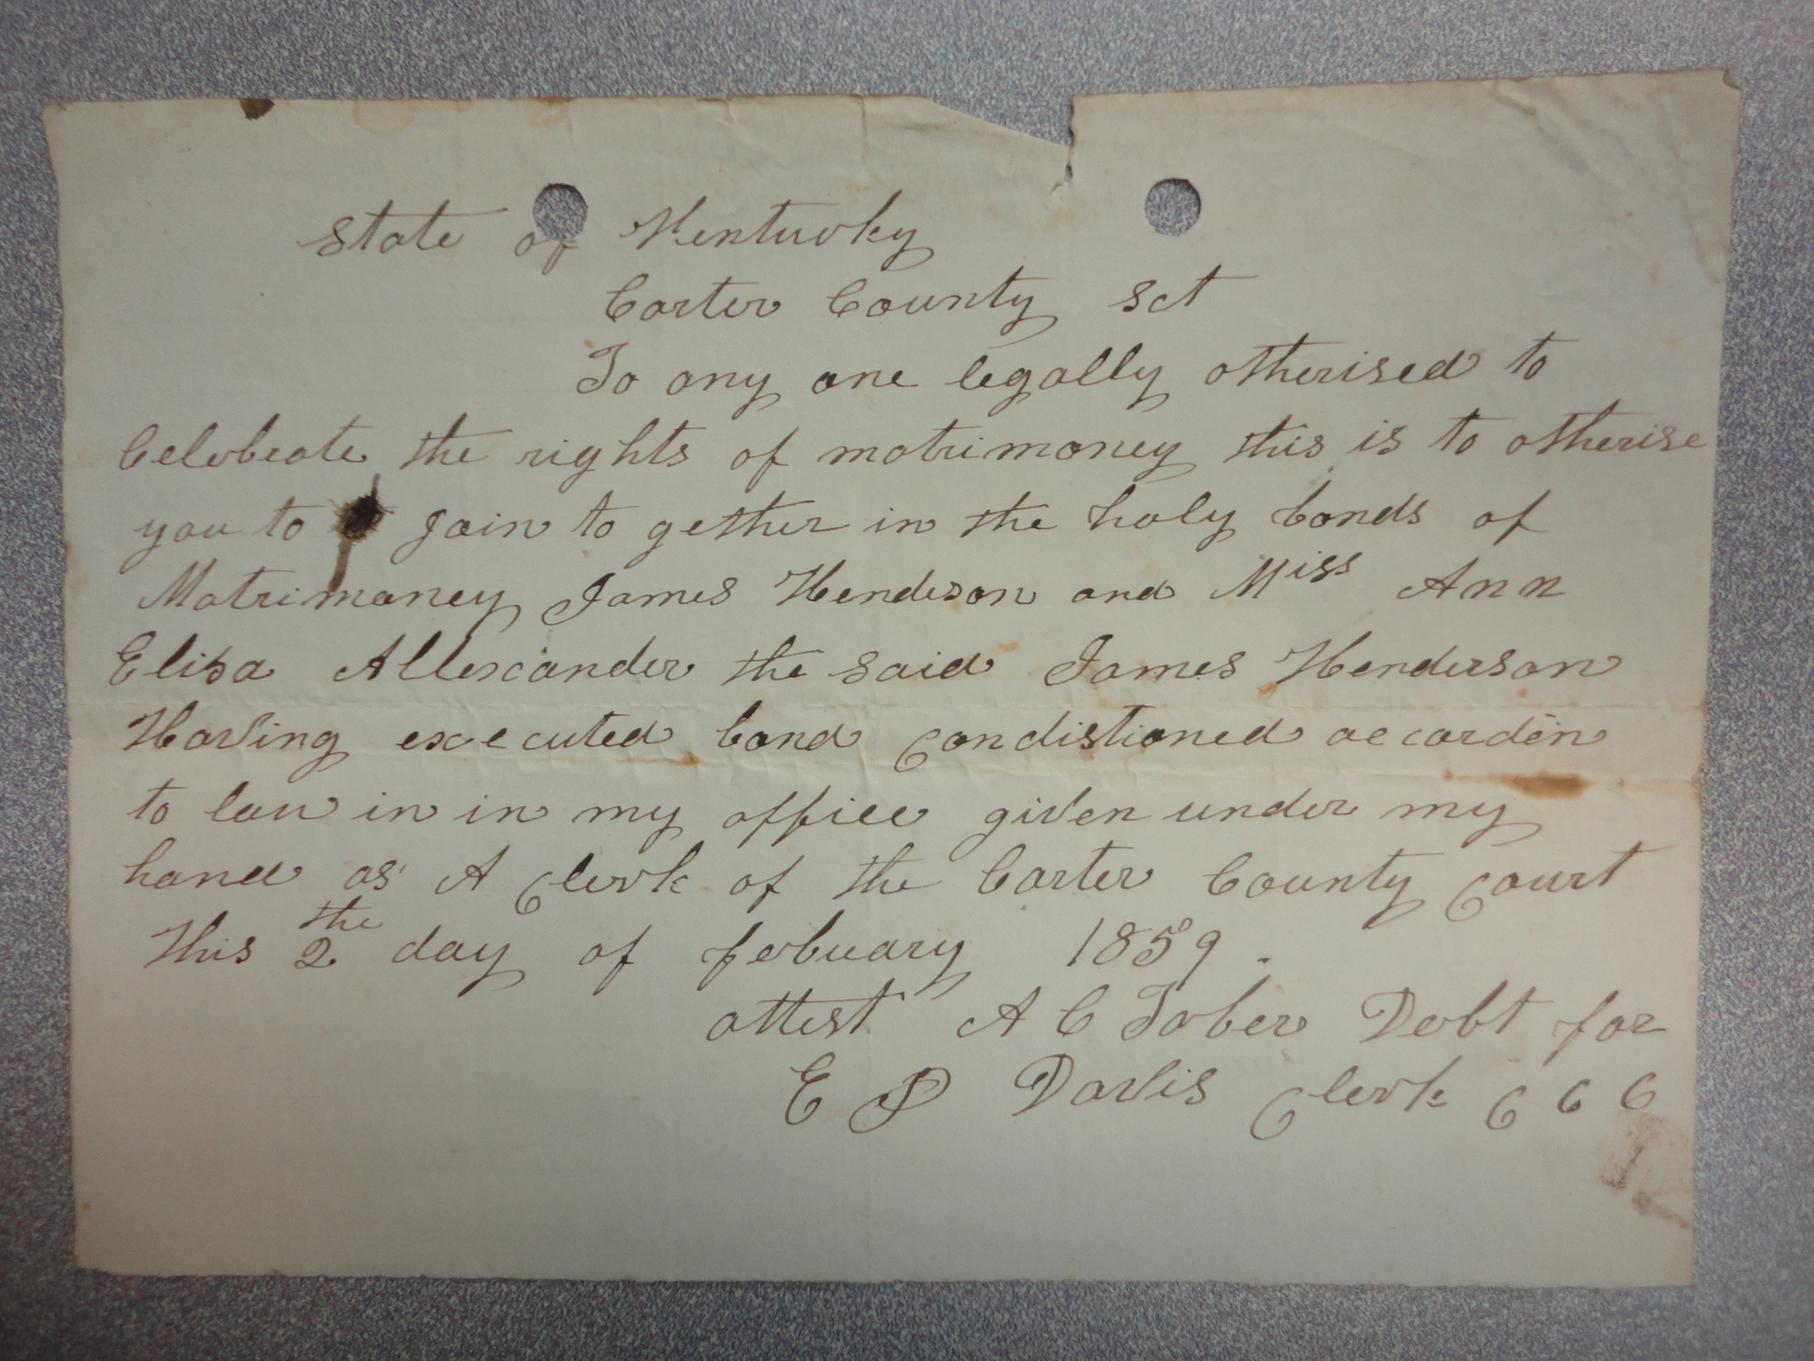 State of Kentucky
Carter County Sct
To any one legally otherised to
Celebeate the rights of matrimoney this is to otherise
you to Join to gether in the holy bonds of
Matrimoney James Hendeson and Miss Ann
Eliza Allexander the said James Henderson
Having executed bond Condistioned accorden
to law in in my office given under my
hand as A Clerk of the Carter County Court
This 2 the day of febuary 1859.
attest A C Tober Debt for
E P Davis Clerk C C C